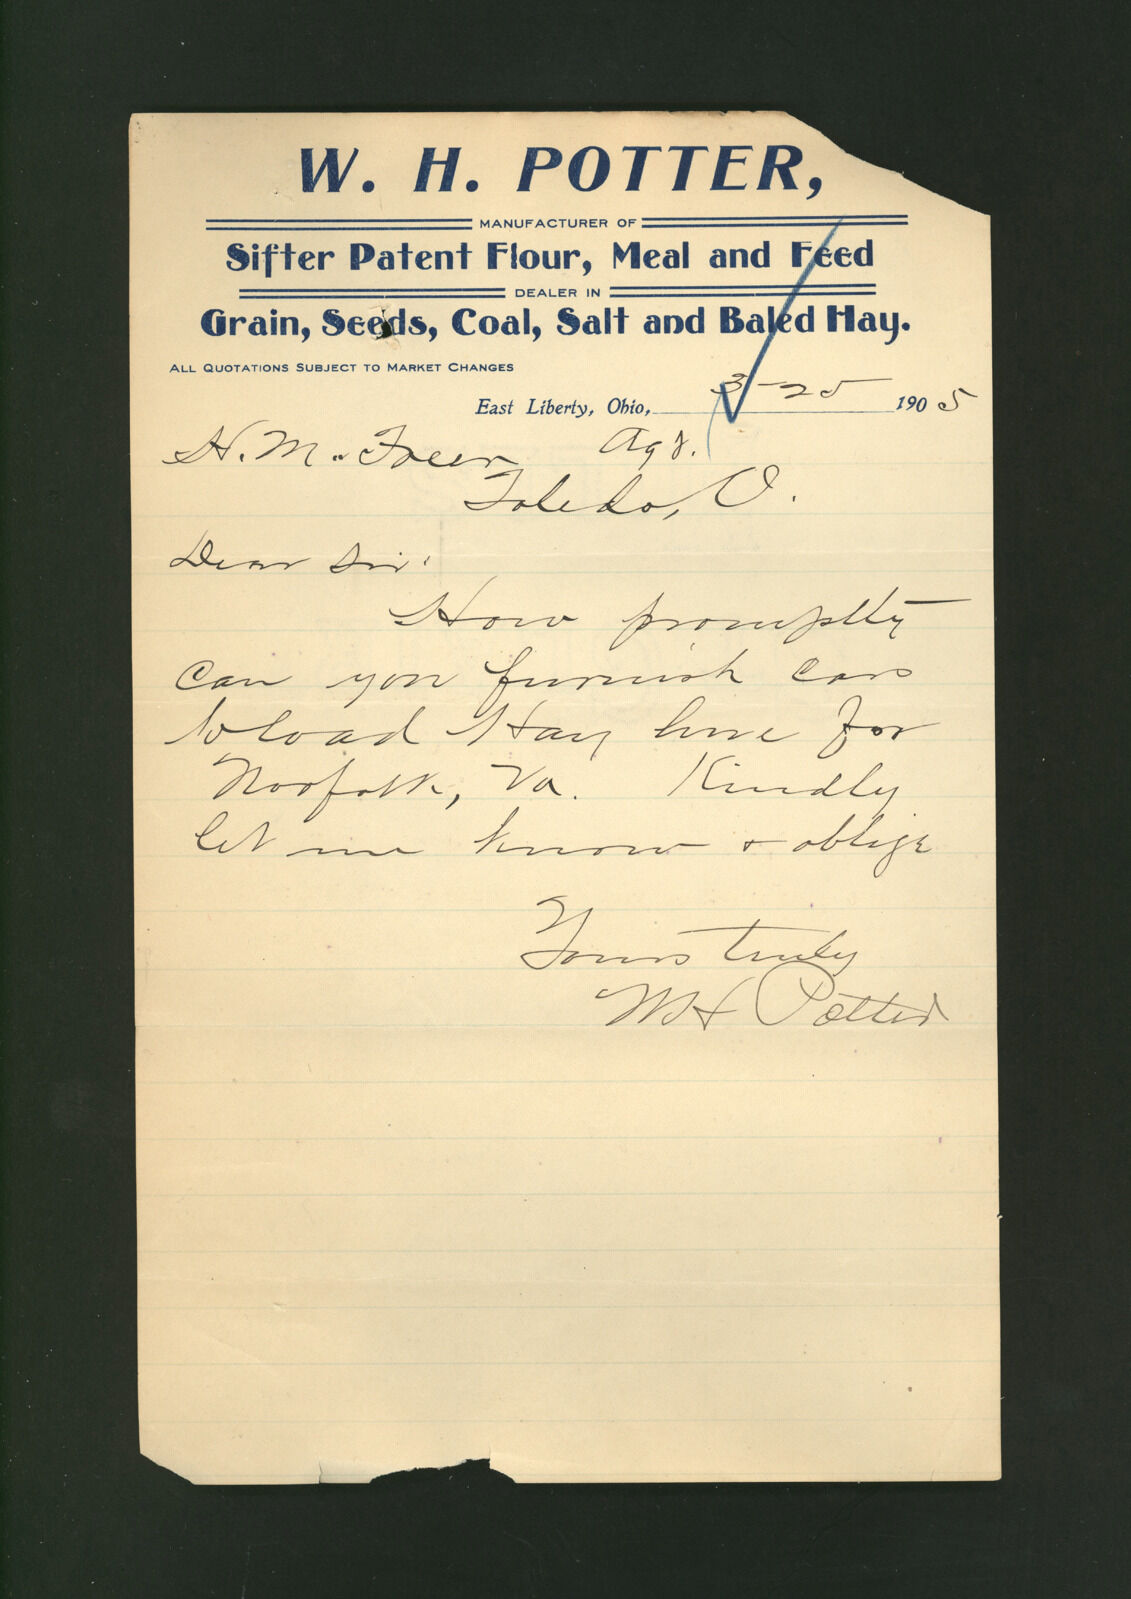 W. H. POTTER,
MANUFACTURER OF
Sifter Patent Flour, Meal and Feed
DEALER IN
Grain, Seeds, Coal, Salt and Baled Hay.
ALL QUOTATIONS SUBJECT TO MARKET CHANGES
East Liberty, Ohio, 3-25 1905
H. M. Freer Agt.
Toledo, O.
Dear Sir:
How promptly
can you furnish cars
to load Hay here for
Norfolk, Va. Kindly
let me know & oblige
Yours truly
WH Potter